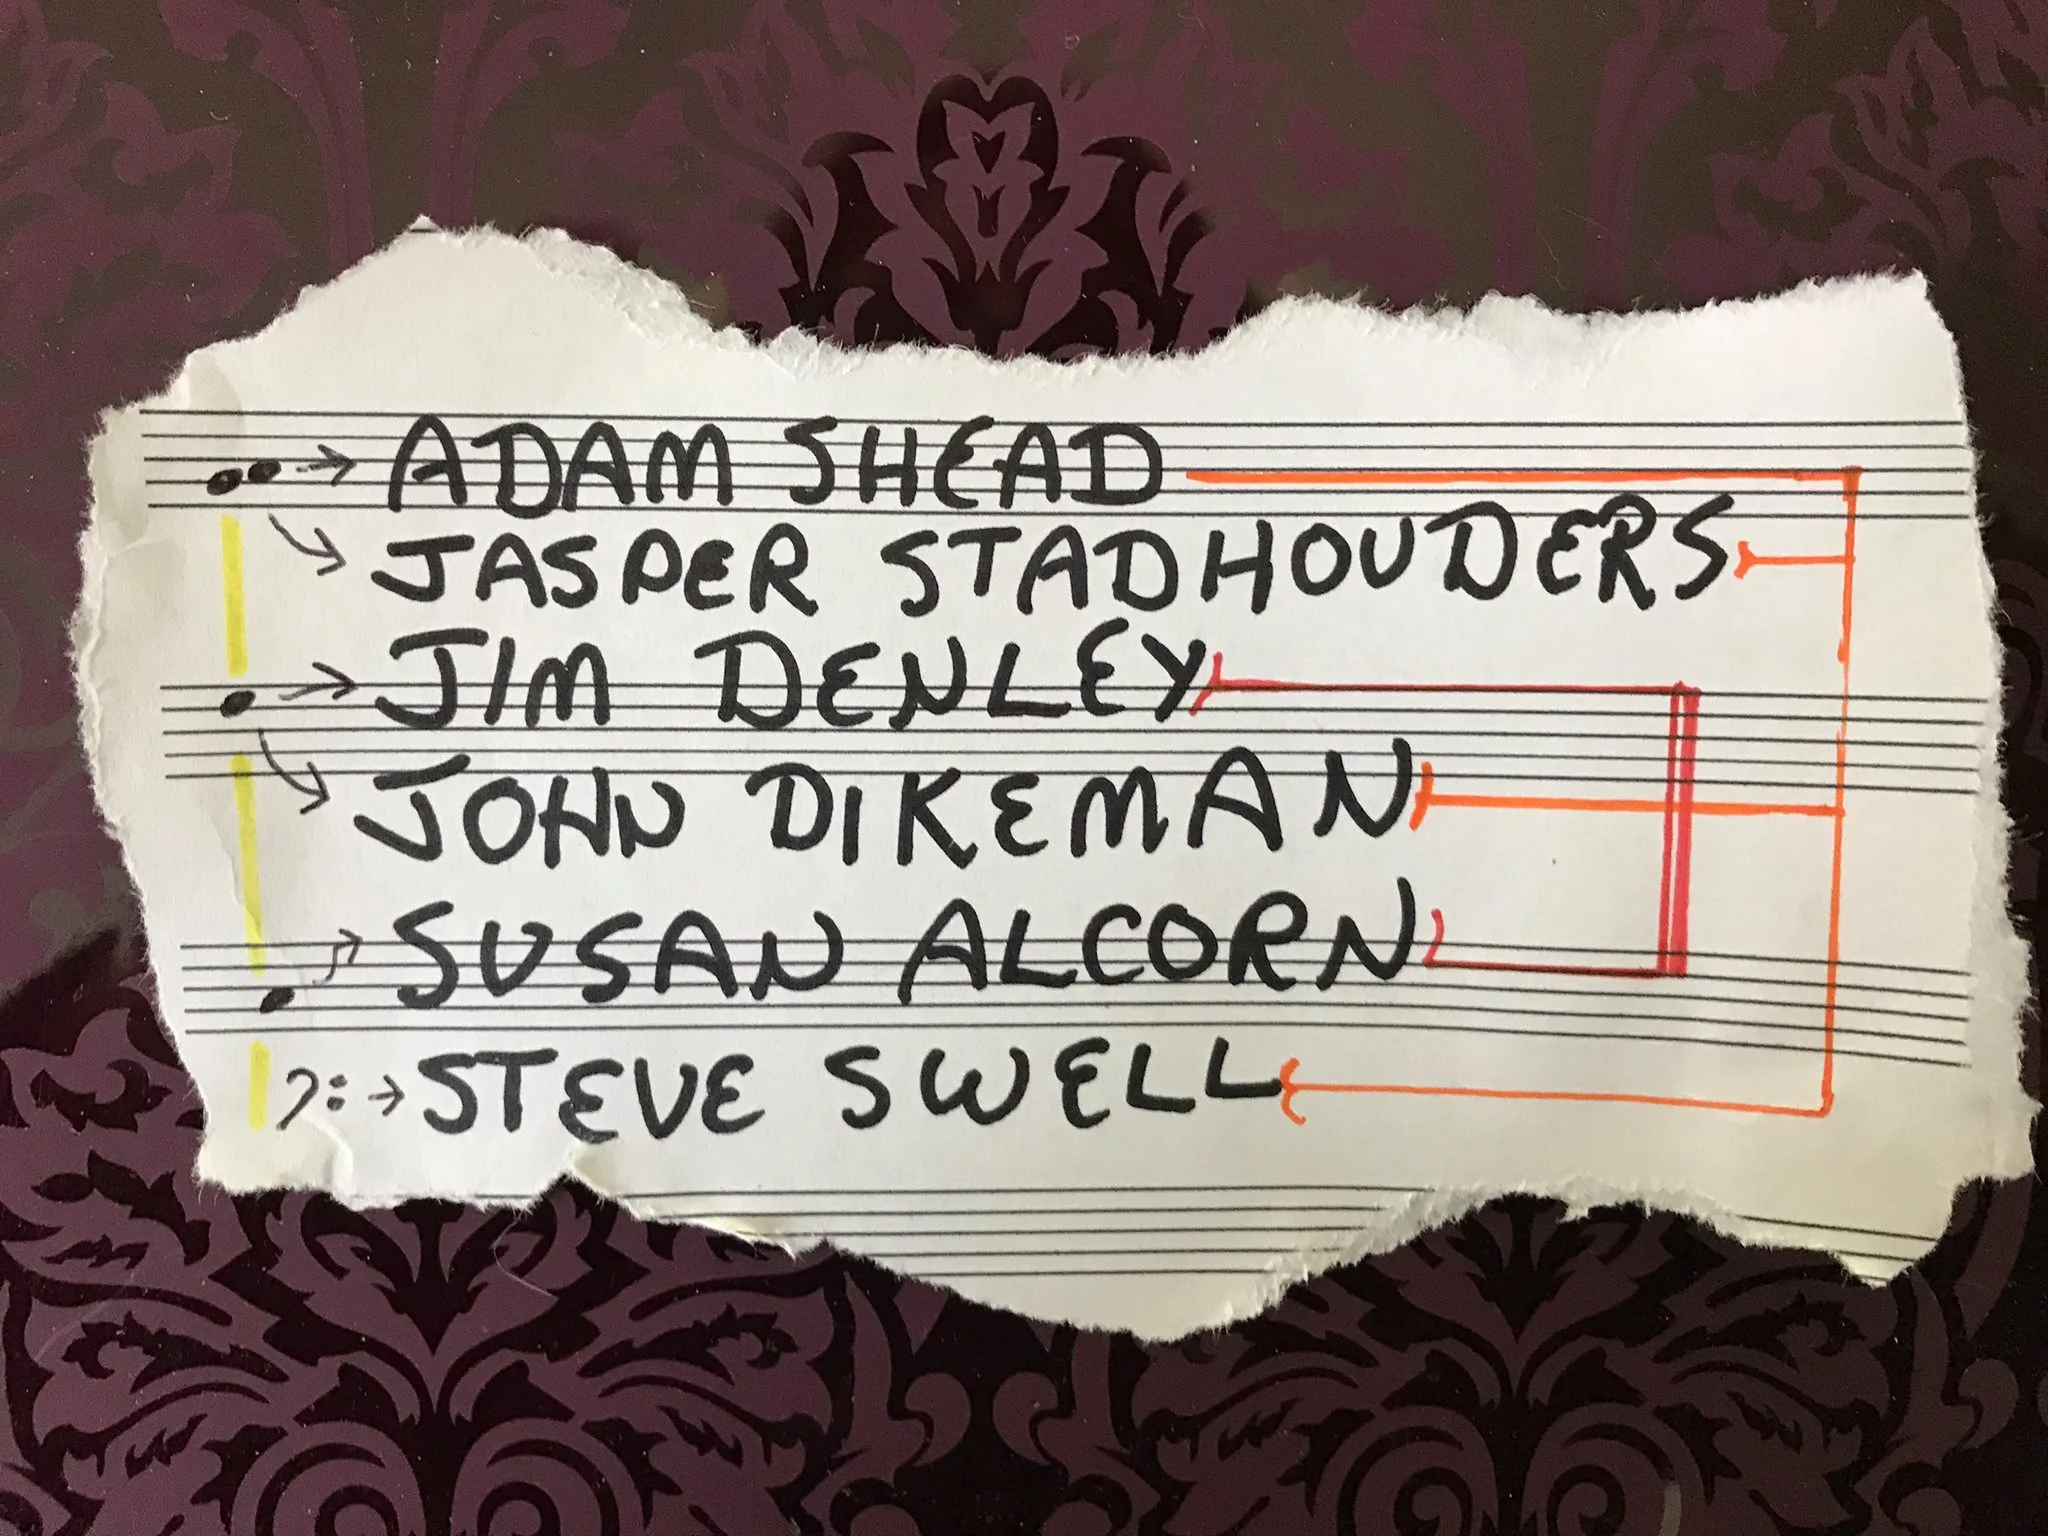 ADAM SHEAD
JASPER STADHOUDERS
JIM DENLEY
JOHN DIKEMAN
SUSAN ALCORN
STEVE SWELL